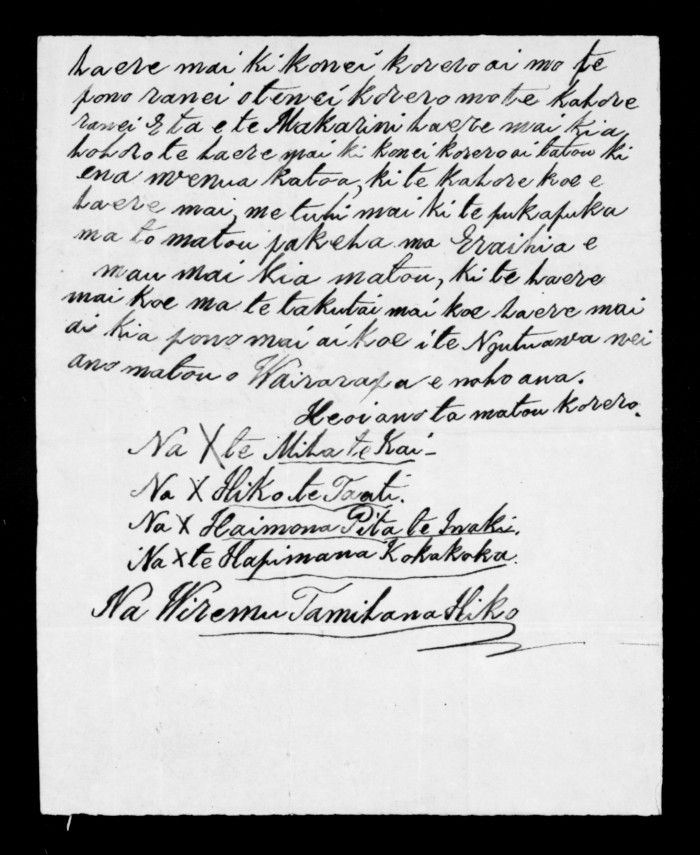 haere mai ki konei korero ai mo te
pono ranei o tenei korero mo te kahore
ranei E ta e te Makarini haere mai kia
hohoro te haere mai ki konei korero ai tatou ki
ena wenua katoa, ki te kahore koe e
haere mai, me tuhi mai ki te pukapuka
ma to matou pakeha ma Eraihia e
mau mai kia matou, ki te haere
mai koe ma te takutai mai koe haere mai
ai kia pono mai ai koe i te Ngutuawa nei
ano matou o Wairarapa e noho ana.
Heoi ano ta matou korero.
Na X te Miha te Kai -
Na X Hiko te Taati.
Na X Haimona Pita te Iwaki.
Na X te Hapimana Kokakoka.
Na Wiremu Tamihana Hiko